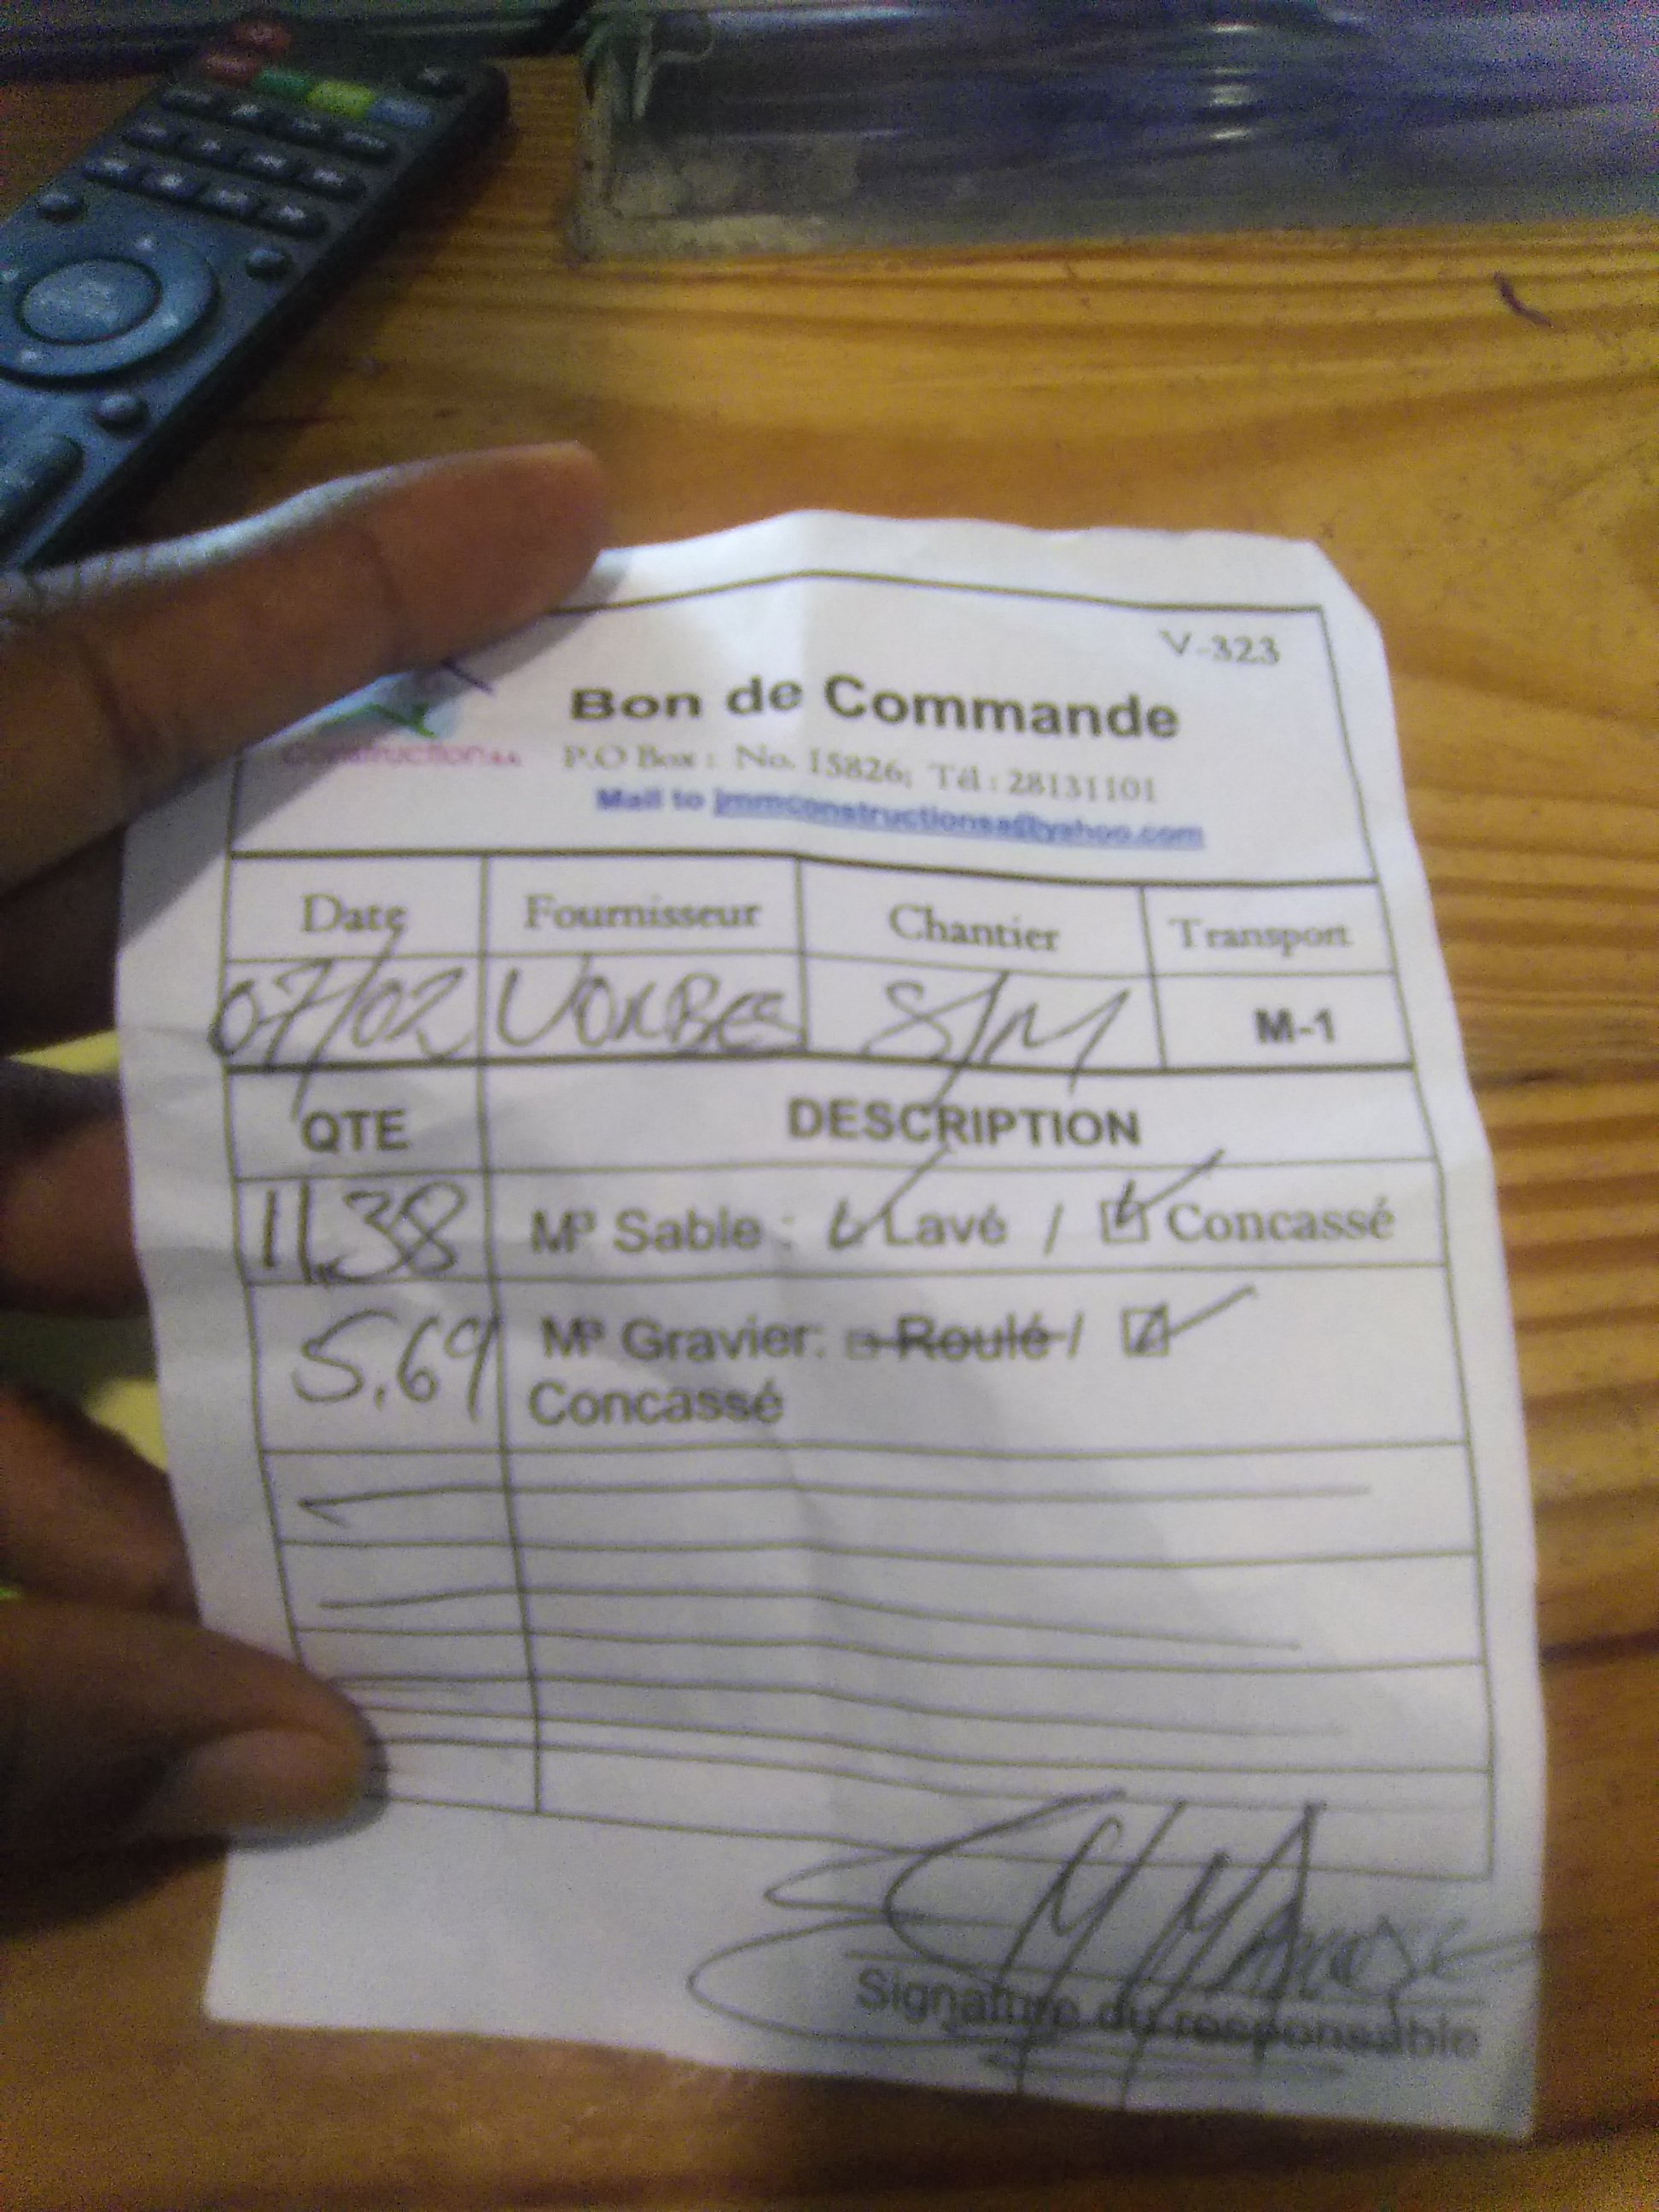 V-323
Bon de Commande
Construction s.a
P.O Box : No. 15826; Tél : 28131101
Mail to jmmconstructionsa@yahoo.com
Date Fournisseur Chantier Transport
07/02 VORBES S/M M-1
QTE DESCRIPTION
11.38 M³ Sable : Lavé / ☑ Concassé
5.69 M³ Gravier: □ Roulé / ☑
Concassé
Signature du responsable